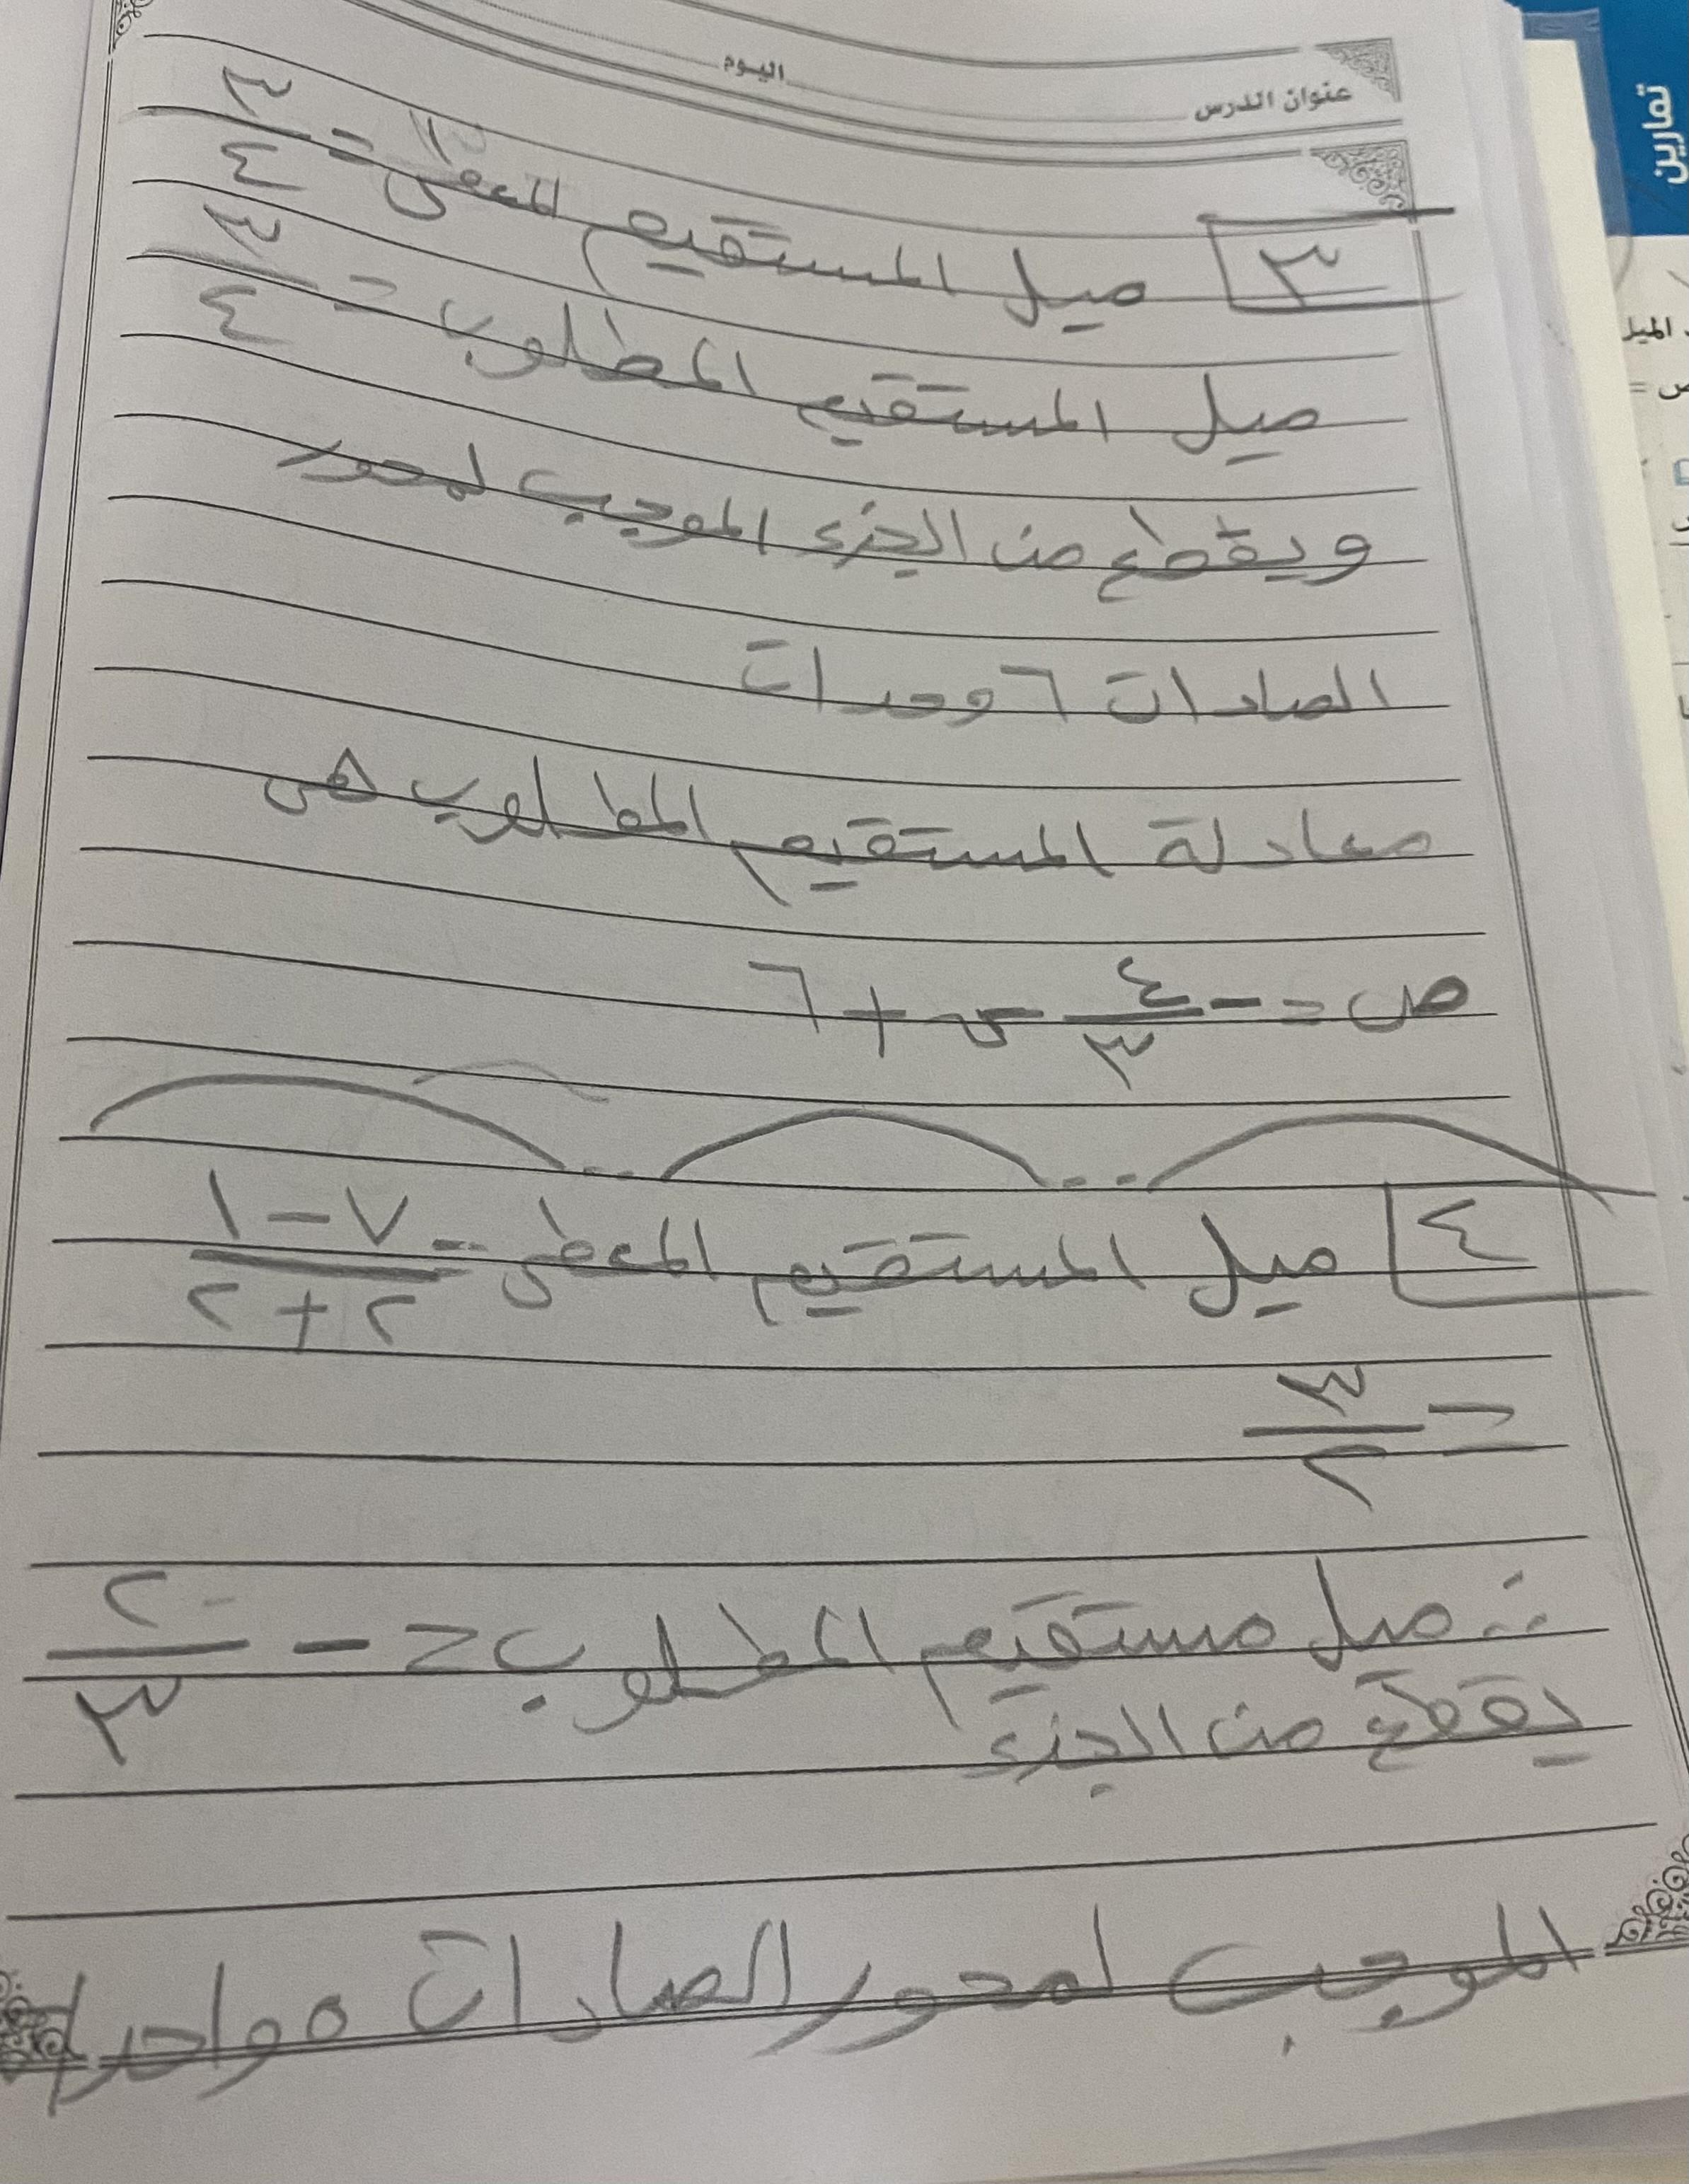 عنوان الدرس
اليوم
تمارين
٣ ميل المستقيم المعطى = ٣/٤
ميل المستقيم المطلوب = ٣/٤
ويقطع من الجزء الموجب لمحور
الصادات ٦ وحدات
معادلة المستقيم المطلوب هى
ص = - ٤/٣ س + ٦
٤ ميل المستقيم المعطى = ٧ - ١ / ٢ + ٢
= ٣/٢
∴ ميل مستقيم المطلوب = - ٢/٣
يقطع من الجزء
الموجب لمحور الصادات
الميل
ص =